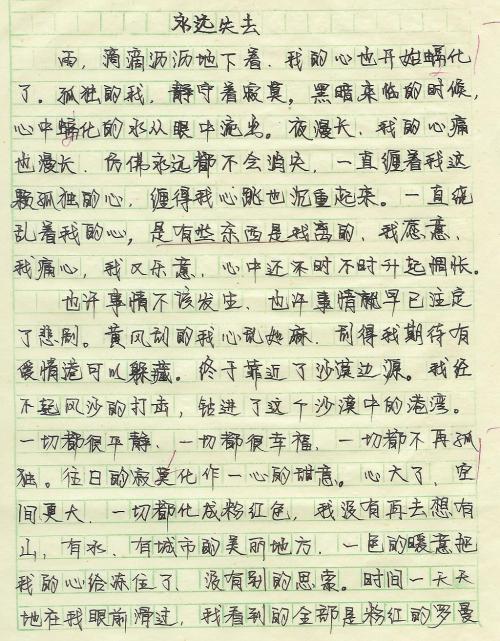 永远失去
雨，滴滴沥沥地下着、我的心也开始蝎化
了。孤独的我，静守着寂莫。黑暗来临的时候，
心中蝎化的水从眼中流出。夜漫长、我的心痛
也漫长、仿佛永远都不会消失，一直缠着我这
颗孤独的心，缠得我心跳也沉重起来。一直绕
乱着我的心，是有些东西是我离的、我愿意、
我痛心，我又乐意、心中还不时不时升起惆怅。
也许事情不该发生、也许事情就早已注定
了悲剧。黄风刮的我心乱如麻、刮得我期待有
爱情港可以躲藏。终于靠近了沙漠边源。我经
不起风沙的打击，钻进了这个沙漠中的港湾。
一切都很平静、一切都很幸福、一切都不再孤
独。往日的寂莫化作一心的甜意。心大了、空
间更大、一切都化成粉红色，我没有再去想有
山，有水、有城市的美丽地方、一色的暖意把
我的心给冻住了、没有别的思索。时间一天天
地在我眼前滑过，我看到的全部是粉红的罗曼